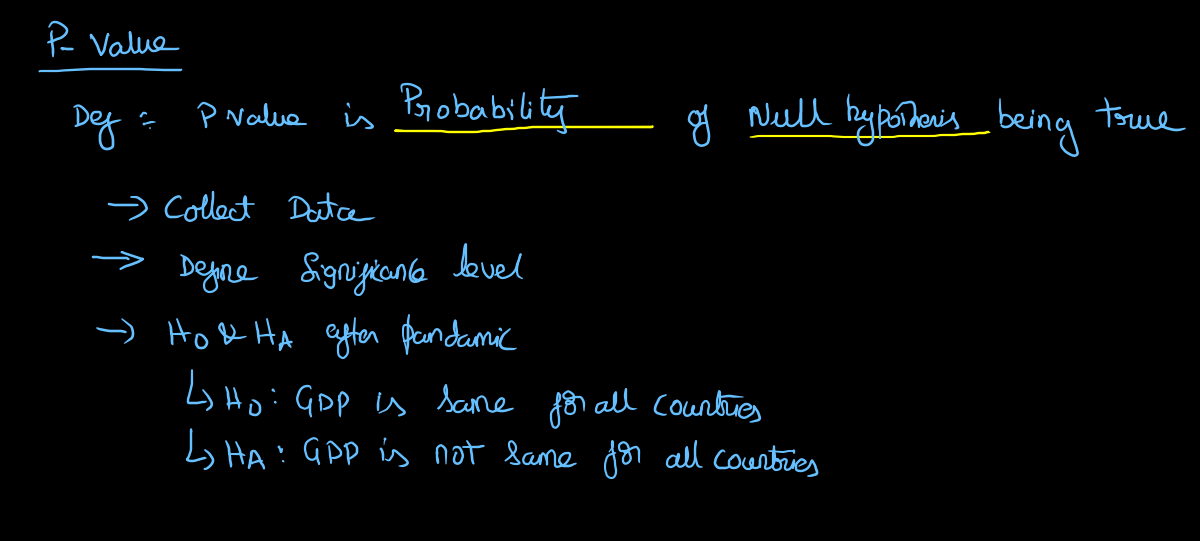 P- Value
Def :- P value is Probability of Null hypothesis being true
→ Collect Data
→ Define Significance level
→ H0 & HA after pandamic
↳ H0 : GDP is same for all countries
↳ HA : GDP is not same for all countries